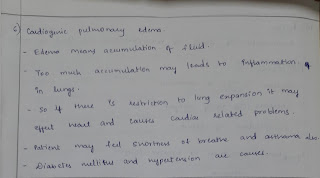 c) Cardiogenic pulmonary edema
- Edema means accumulation of fluid.
- Too much accumulation may leads to inflammation
in lungs.
- So if there is restriction to lung expansion it may
effect heart and causes cardiac related problems.
- Patient may feel shortness of breathe and asthama also.
- Diabetes mellitus and hypertension are causes.